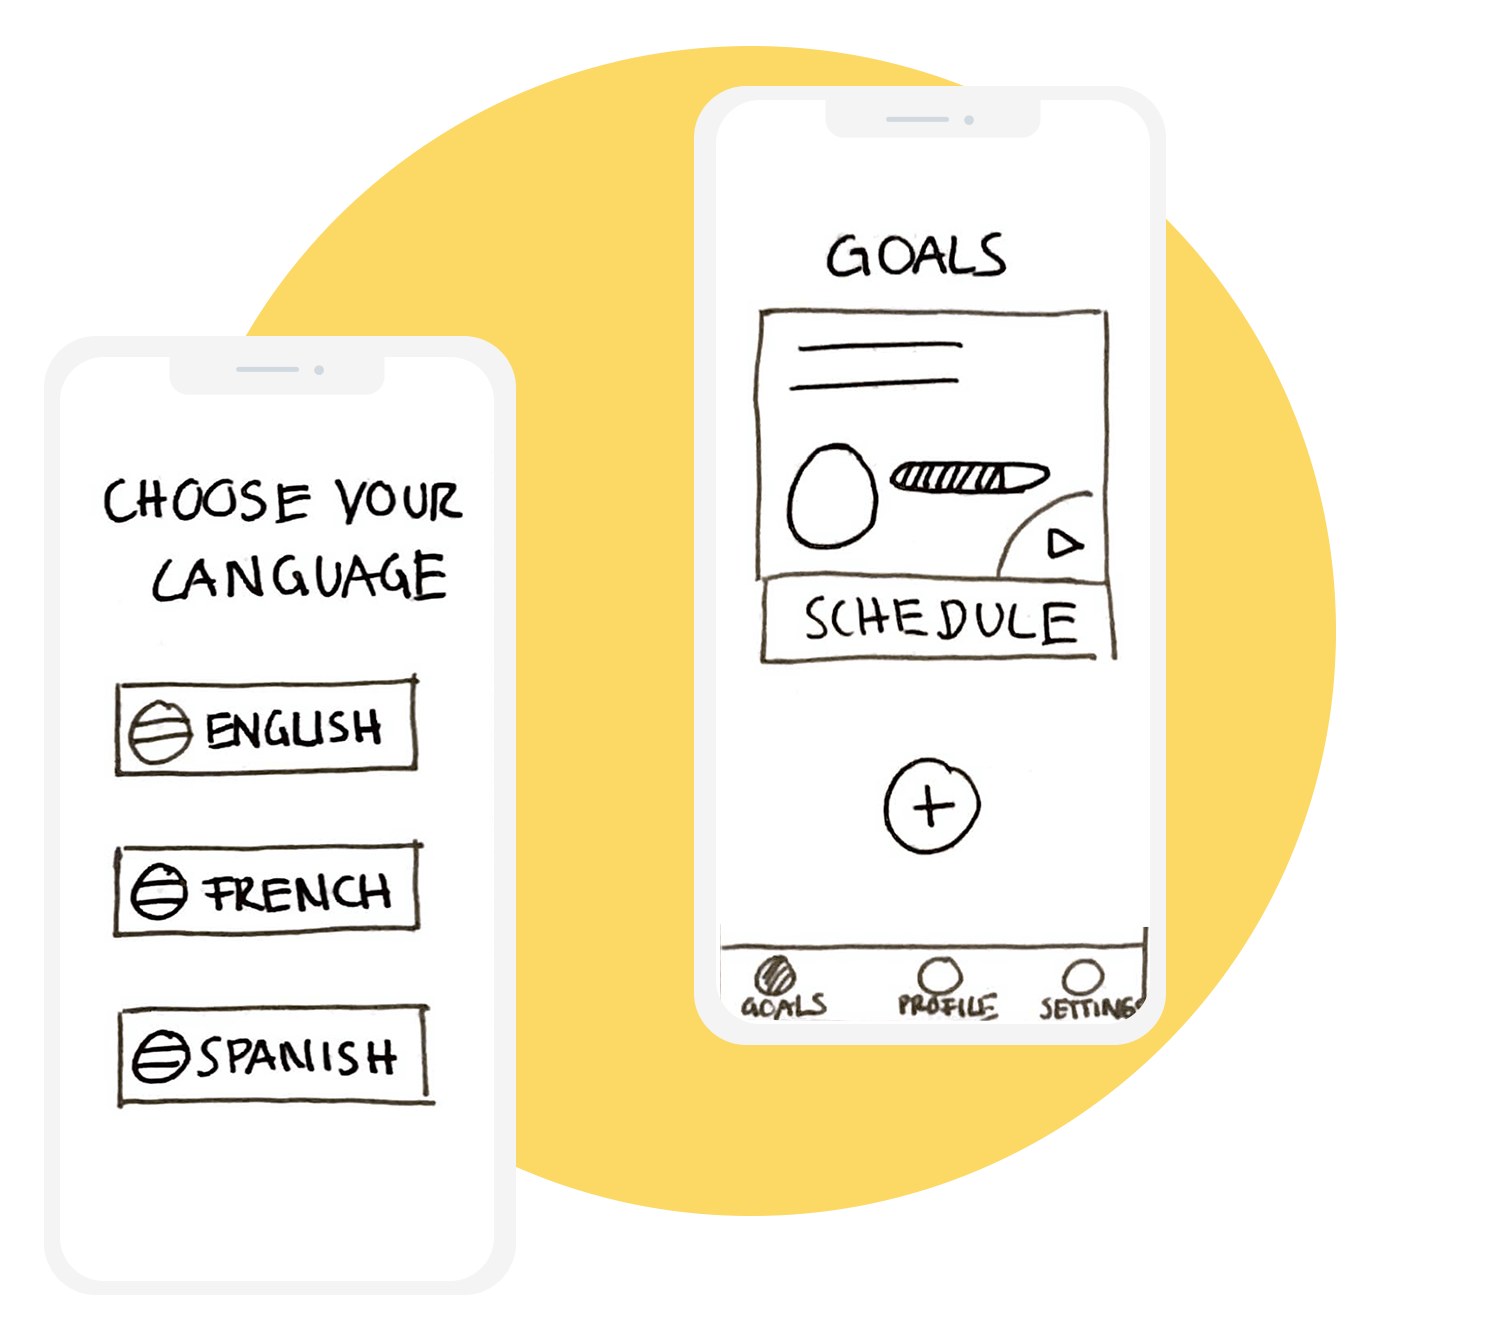 CHOOSE YOUR
LANGUAGE
ENGLISH
FRENCH
SPANISH
GOALS
SCHEDULE
GOALS
PROFILE
SETTINGS